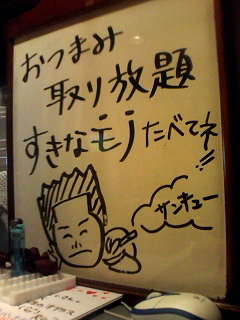 おつまみ
取り放題
すきなモノたべてネ!!
サンキュー